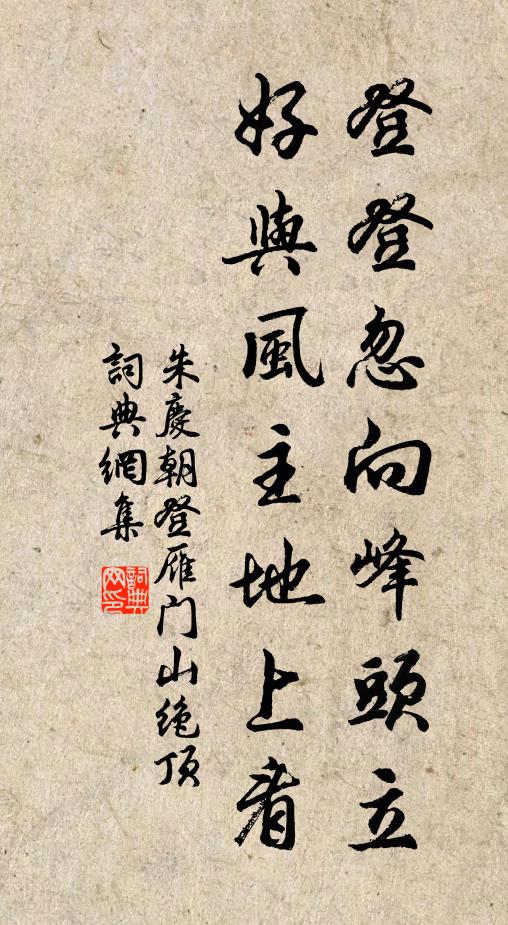 登登忽向峰頭立
好與風主地上看
朱慶朝登雁门山絶顶
詞典網集
詞典
网印